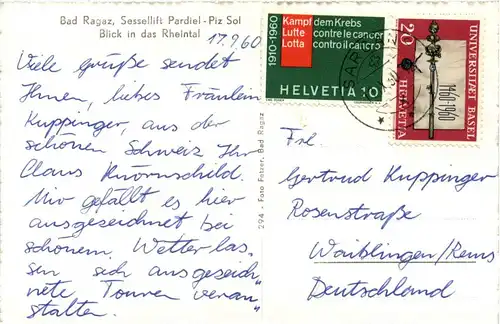 Bad Ragaz, Sessellift Pardiel-Piz Sol
Blick in das Rheintal
17.9.60
Viele grüße sendet
Ihnen, liebes Fräulein
Kuppinger, aus der
schönen Schweiz Ihr
Claus Knörnschild.
Mir gefällt es hier
ausgezeichnet bei
schönem Wetter las-
sen sich ausgezeich-
nete Touren veran-
stalten.
294 - Foto Fetzer, Bad Ragaz
1910-1960
Kampf dem Krebs
Lutte contre le cancer
Lotta contro il cancro
HELVETIA 10
UNIVERSITÄT BASEL
1460-1960
HELVETIA
20
Frl.
Gertrud Kuppinger
Rosenstraße
Waiblingen/Rems
Deutschland